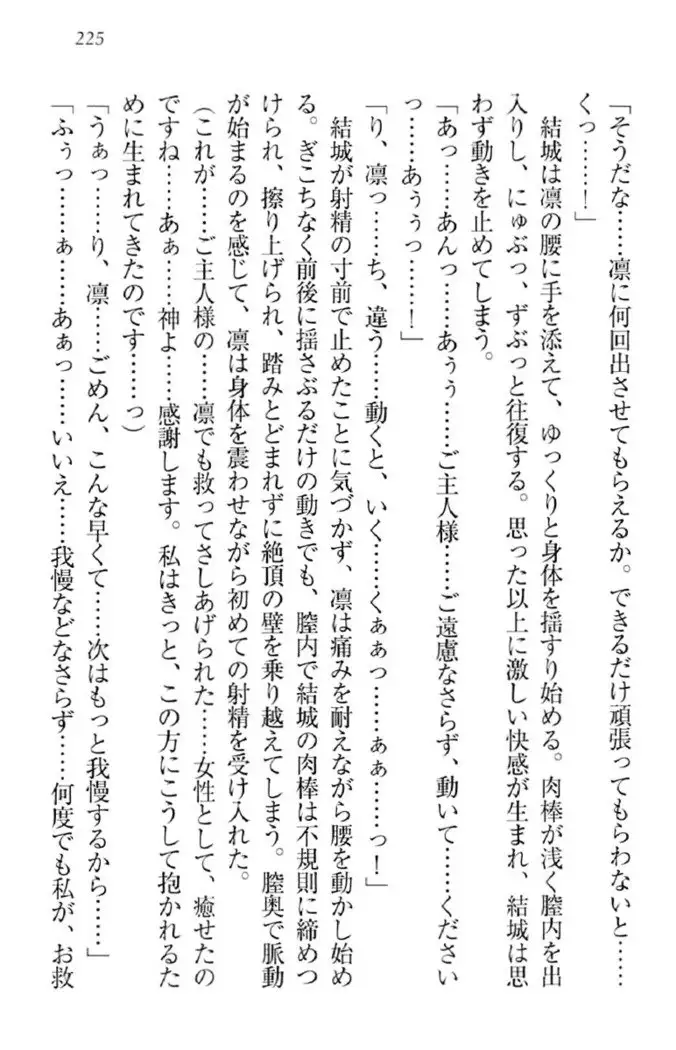 225
「そうだな……凛に何回出させてもらえるか。できるだけ頑張ってもらわないと……
くっ……！」
　結城は凛の腰に手を添えて、ゆっくりと身体を揺すり始める。肉棒が浅く膣内を出
入りし、にゅぶっ、ずぶっと往復する。思った以上に激しい快感が生まれ、結城は思
わず動きを止めてしまう。
「あっ……あんっ……あぅぅ……ご主人様……ご遠慮なさらず、動いて……ください
っ……あぅぅっ……！」
「り、凛っ……ち、違う……動くと、いく……くぁぁっ……ぁぁ……っ！」
　結城が射精の寸前で止めたことに気づかず、凛は痛みを耐えながら腰を動かし始め
る。ぎこちなく前後に揺さぶるだけの動きでも、膣内で結城の肉棒は不規則に締めつ
けられ、擦り上げられ、踏みとどまれずに絶頂の壁を乗り越えてしまう。膣奥で脈動
が始まるのを感じて、凛は身体を震わせながら初めての射精を受け入れた。
（これが……ご主人様の……凛でも救ってさしあげられた……女性として、癒せたの
ですね……あぁ……神よ……感謝します。私はきっと、この方にこうして抱かれるた
めに生まれてきたのです……っ）
「うぁっ……り、凛……ごめん、こんな早くて……次はもっと我慢するから……」
「ふぅっ……ぁ……あぁっ……いいえ……我慢などなさらず……何度でも私が、お救